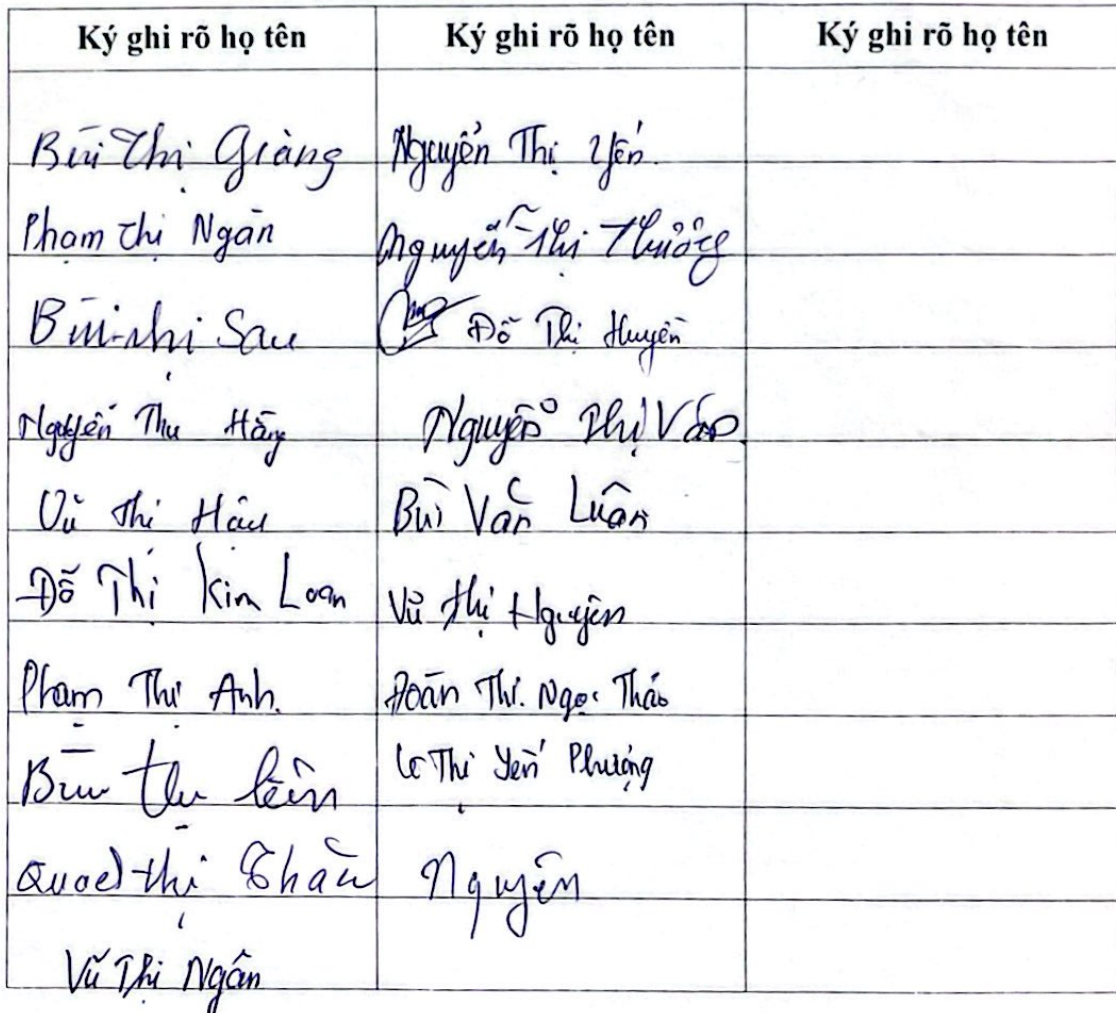 Ký ghi rõ họ tên Ký ghi rõ họ tên Ký ghi rõ họ tên
Bùi Thị Giàng Nguyễn Thị Yến.
Phạm Thị Ngân Nguyễn Thị Thưởng
Bùi Thị Sau Đỗ Thị Huyền
Nguyễn Thu Hằng Nguyễn Thị Vân
Vũ Thị Hậu Bùi Văn Luân
Đỗ Thị Kim Loan Vũ Thị Nguyên
Phạm Thị Anh. Đoàn Thị Ngọc Thảo
Bùi Thị Lê Thị Yến Phượng
Thị Nguyên
Vũ Thị Ngân